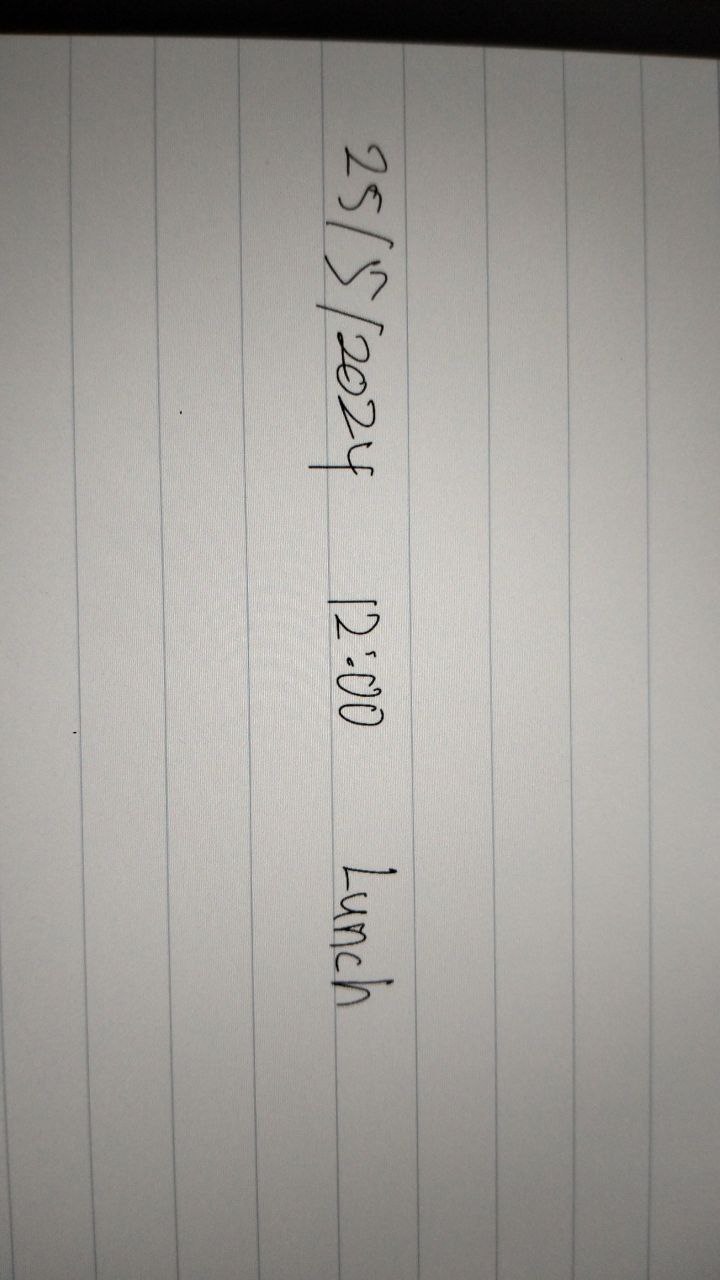 25/5/2024 12:00 Lunch